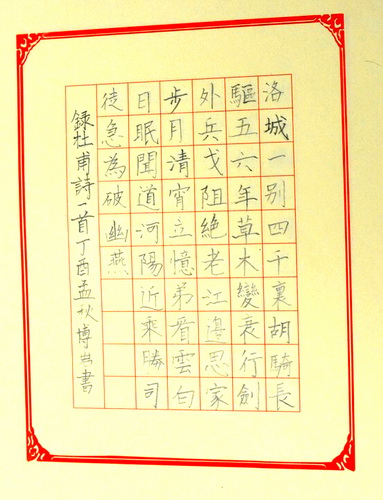 洛城一别四千裏胡騎長
驅五六年草木變衰行劍
外兵戈阻絶老江邊思家
步月清宵立憶弟看雲白
日眠聞道河陽近乘勝司
徒急為破幽燕
録杜甫詩一首丁酉孟秋博書